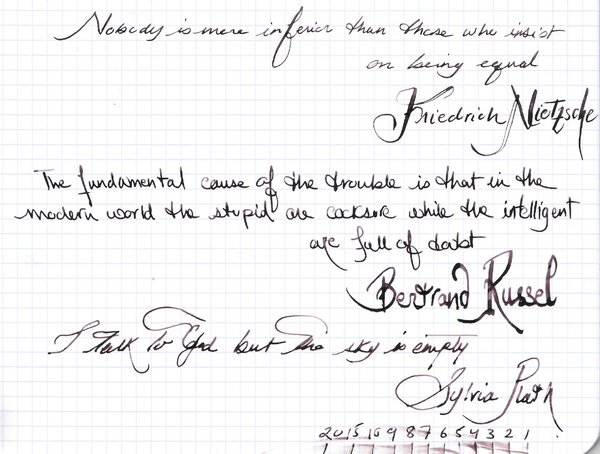 Nobody is more inferior than those who insist
on being equal
Friedrich Nietzsche
The fundamental cause of the trouble is that in the
modern world the stupid are cocksure while the intelligent
are full of doubt
Bertrand Russel
I talk to God but the sky is empty
Sylvia Plath
20 15 10 9 8 7 6 5 4 3 2 1